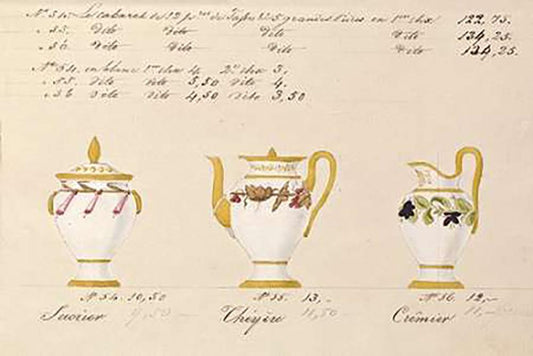 N.º 54. Le cabaret de 12 p.res de Tasses & 5 grandes Pièces en 1.er choix 122,75.
" 55. Dito Dito Dito Dito 134,25.
" 56. Dito Dito Dito Dito 134,25.
N.º 54. en blanc 1.er choix 4, 2.d choix 3,
" 55. Dito Dito 5,50 Dito 4.
" 56 Dito Dito 4,50 Dito 3,50
N.º 54. 10,50 N.º 55. 13,- N.º 56 12,-
Sucrier 9,50 Théyère 11,50 Crêmier